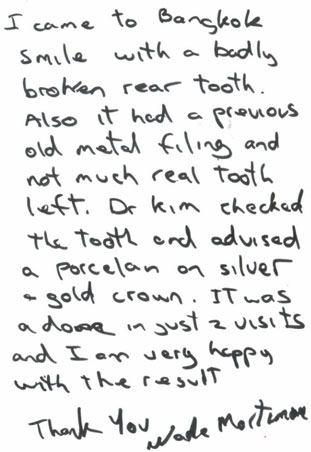 I came to Bangkok
Smile with a badly
broken rear tooth.
Also it had a previous
old metal filing and
not much real tooth
left. Dr Kim checked
the tooth and advised
a porcelan on silver
+ gold crown. IT was
a done in just 2 visits
and I am very happy
with the result
Thank You Wade Mortimore